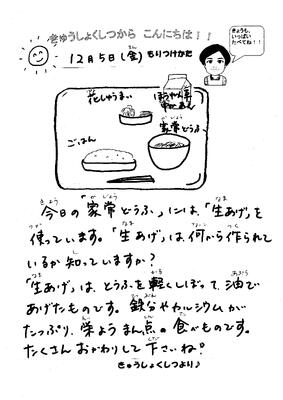 きゅうしょくしつから こんにちは!!
きょうも、
いっぱい
たべてね!!
12月5日(金)もりつけかた
花しゅうまい
家常どうふ
ごはん
今日の“家常どうふ”には、「生あげ」を
使っています。「生あげ」は、何から作られて
いるか知っていますか?
「生あげ」は、とうふを軽くしぼって、油で
あげたものです。鉄分やカルシウムが
たっぷり、栄ようまん点の食べものです。
たくさんおかわりして下さいね。
きゅうしょくしつより♪